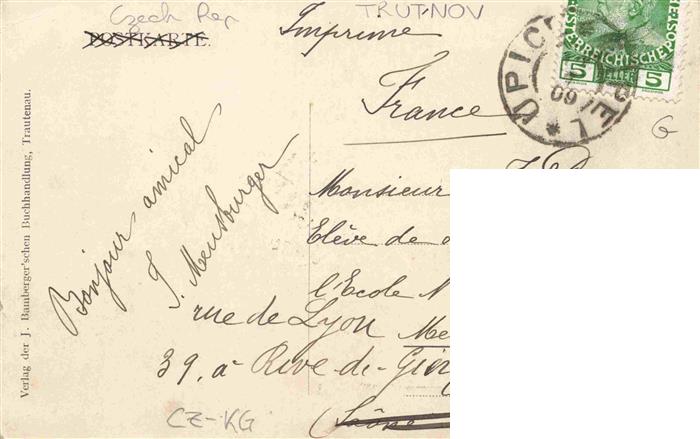 Czech Rep
TRUTNOV
POSTKARTE.
Imprimé
France
G
5 HELLER 5
ÖSTERREICHISCHE POST
UPIC
09
Verlag der J. Bamberger'schen Buchhandlung, Trautenau.
Bonjour amical
J. Meusburger
Monsieur
Elève de
l'Ecole
rue de Lyon
39, à Rive-de-Gier
(Saône
CZ-KG